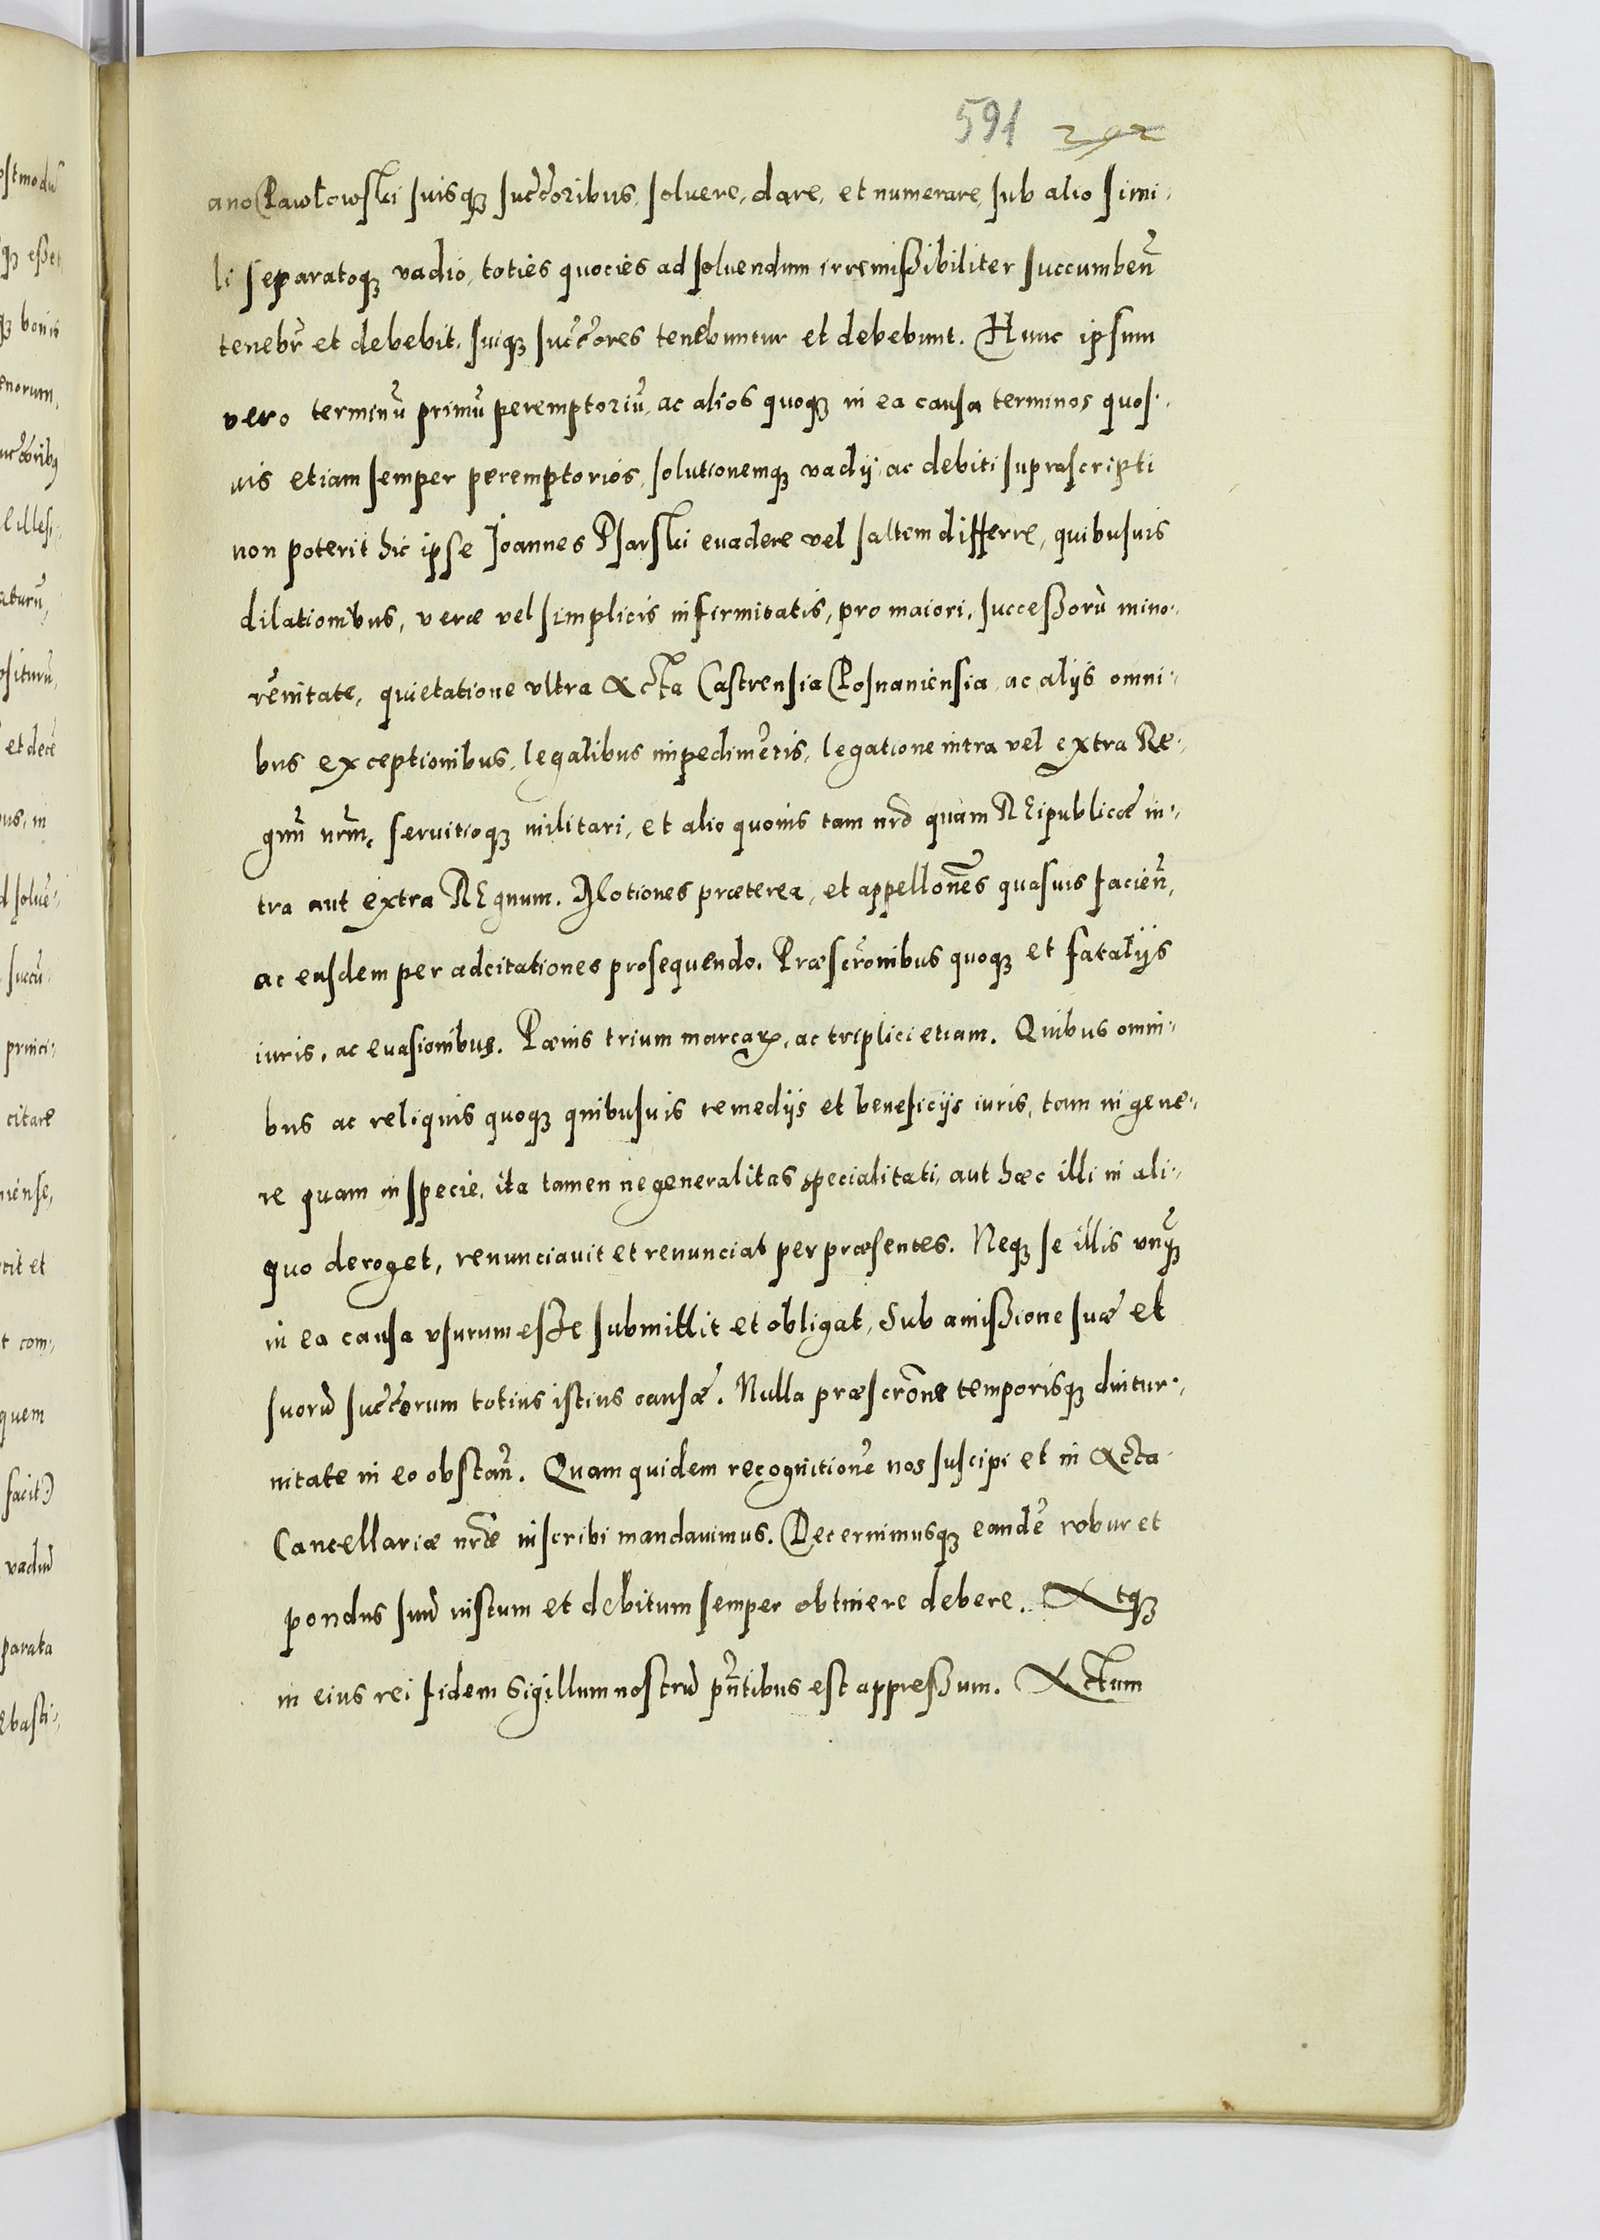 591 292
ano Pawłowski suisq3 succ̃oribus, soluere, dare, et numerare, sub alio simi-
li separatoq3 vadio, toties quocies ad soluendum irremißibiliter succumben̄
tenebr̃ et debebit, suiq3 succ̃ores tenebuntur et debebunt. Hunc ipsum
vero terminū primū peremptoriū, ac alios quoq3 in ea causa terminos quos-
uis etiam semper peremptorios, solutionemq3 vadij, ac debiti suprascripti
non poterit hic ipse Joannes Psarski euadere vel saltem differre, quibusuis
dilationibus, veræ vel simplicis infirmitatis, pro maiori, succeßorū mino-
rēnitate, quietatione vltra Acta Castrensia Posnaniensia, ac alijs omni-
bus exceptionibus, legalibus impedimētis, legatione intra vel extra Re-
gnū nr̃m, seruitioq3 militari, et alio quouis tam nr̃o quam REipublicæ in-
tra aut extra REgnum. Motiones præterea, et appellōnes quasuis facien̄,
ac easdem per adcitationes prosequendo. Præscrōnibus quoq3 et fatalijs
iuris, ac euasionibus. Pœnis trium marcaꝝ, ac triplici etiam. Quibus omni-
bus ac reliquis quoq3 quibusuis remedijs et beneficijs iuris, tam in gene-
re quam in specie, ita tamen ne generalitas specialitati, aut hæc illi in ali-
quo deroget, renunciauit et renunciat per præsentes. Neq3 se illis vnq̃3
in ea causa vsurum esse submittit et obligat, Sub amißione suæ et
suorū succ̃orum totius istius causæ. Nulla præscrōne temporisq3 diutur-
nitate in eo obstan̄. Quam quidem recognitionē nos suscipi et in Acta
Cancellariæ nr̃æ inscribi mandauimus. Decernimusq3 eandē robur et
pondus suū iustum et debitum semper obtinere debere. Atq3
in eius rei fidem Sigillum nostrū pñtibus est appreßum. Actum